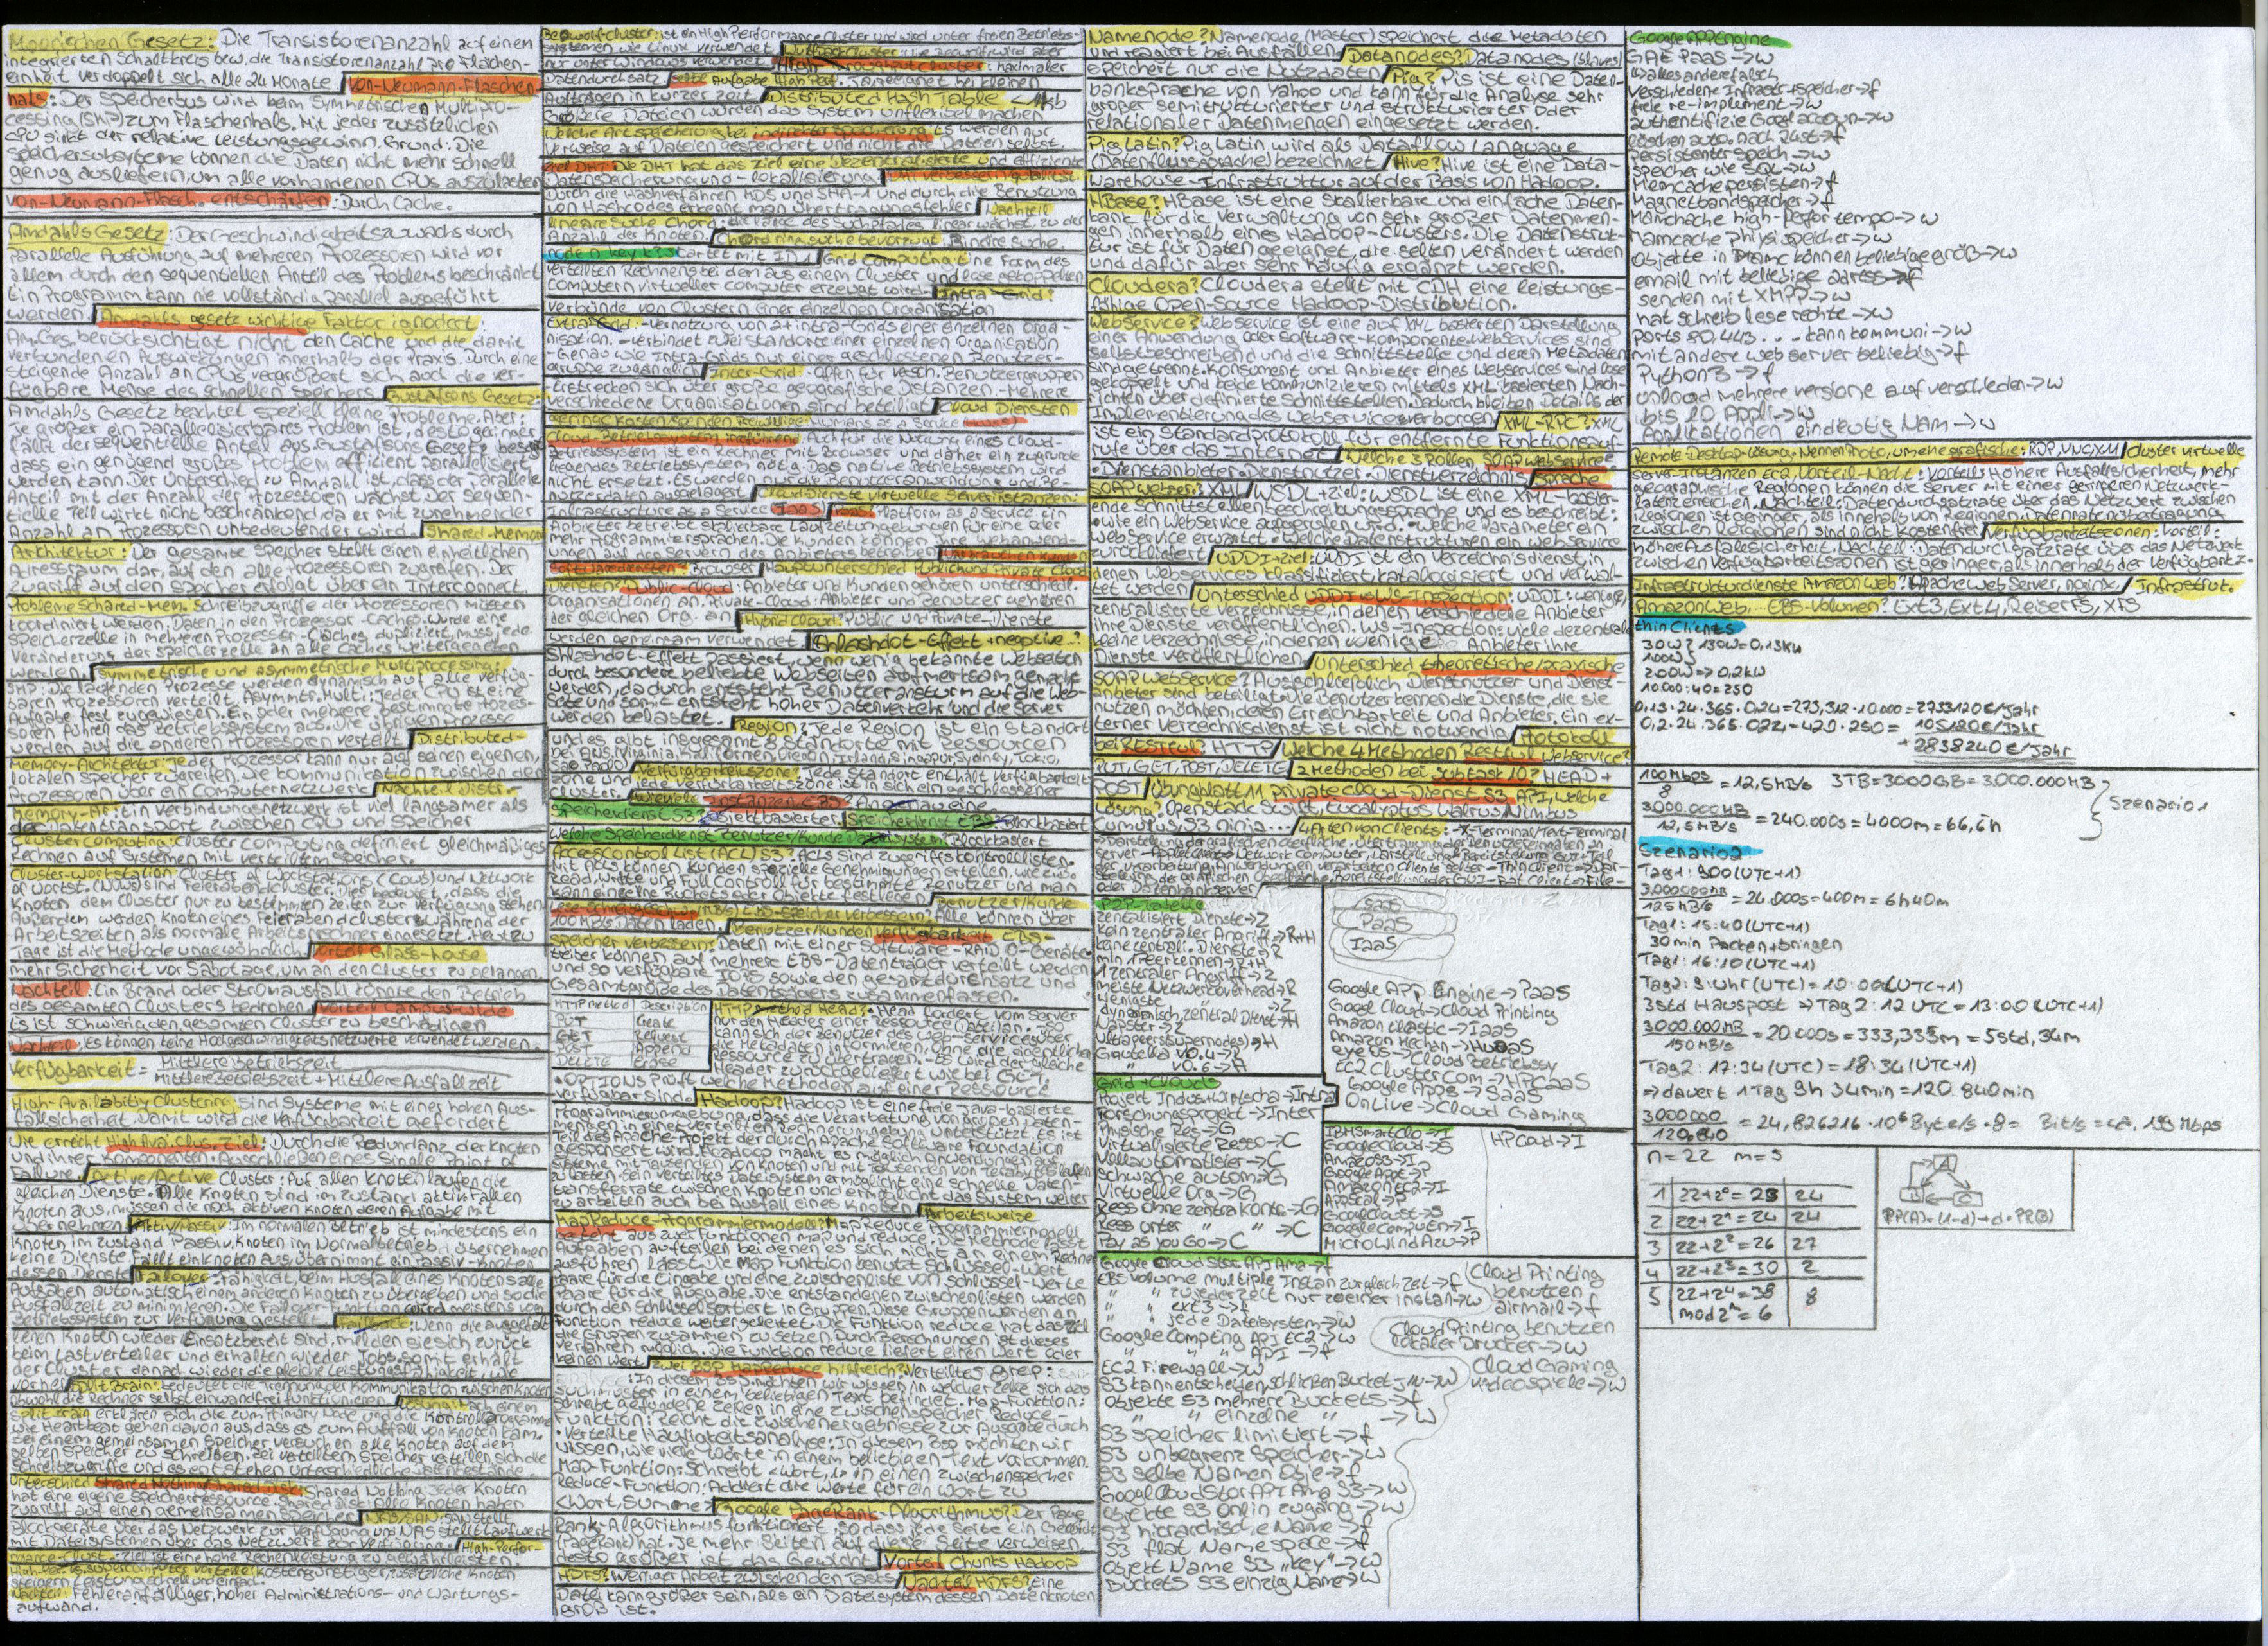 Moorischen Gesetz: Die Transistorenanzahl auf einem
integrierten Schaltkreis bzw. die Transistorenanzahl pro Flächen-
einheit verdoppelt sich alle 24 Monate / Von-Neumann-Flaschen
hals: Der Speicherbus wird beim Symmetrischen Multipro-
cessing (SMP) zum Flaschenhals. Mit jeder zusätzlichen
CPU sinkt der relative Leistungsgewinn. Grund: Die
Speichersubsysteme können die Daten nicht mehr schnell
genug ausliefern, um alle vorhandenen CPUs auszulasten
Von-Neumann-Flasch. entschärfen: Durch Cache.
Amdahls Gesetz: Der Geschwindigkeitszuwachs durch
parallele Ausführung auf mehreren Prozessoren wird vor
allem durch den sequentiellen Anteil des Problems beschränkt
Ein Programm kann nie vollständig parallel ausgeführt
werden. / Amdahls gesetz wichtige Faktor ignoriert:
Am.Ges. berücksichtigt nicht den Cache und die damit
verbundenen Auswirkungen innerhalb der Praxis. Durch eine
steigende Anzahl an CPUs vergrößert sich auch die ver-
fügbare Menge des schnellen Speichers / Gustafsons Gesetz:
Amdahls Gesetz beachtet speziell kleine Probleme. Aber:
Je größer ein parallelisierbares Problem ist, desto geringer
fällt der sequentielle Anteil aus. Gustafsons Gesetz besagt
dass ein genügend großes Problem effizient parallelisiert
werden kann. Der Unterschied zu Amdahl ist, dass der parallele
Anteil mit der Anzahl der Prozessoren wächst. Der sequen-
tielle Teil wirkt nicht beschränkend, da er mit zunehmender
Anzahl an Prozessoren unbedeutender wird / Shared-Memory
Architektur: Der gesamte Speicher stellt einen einheitlichen
Adressraum dar, auf den alle Prozessoren zugreifen. Der
Zugriff auf den Speicher erfolgt über ein Interconnect.
Probleme Shared-Mem. Schreibzugriffe der Prozessoren müssen
koordiniert werden. Daten in den Prozessor-Caches. Wurde eine
Speicherzelle in mehreren Prozessor-Caches dupliziert, muss jede
Veränderung der Speicherzelle an alle Caches weitergegeben
werden. / Symmetrische und asymmetrische Multiprocessing:
SMP: Die laufenden Prozesse werden dynamisch auf alle verfüg-
baren Prozessoren verteilt. Asymmtr. Multi: Jeder CPU ist eine
Aufgabe fest zugewiesen. Ein oder mehrere bestimmte Prozes-
soren führen das Betriebssystem aus. Die übrigen Prozesse
werden auf die anderen Prozessoren verteilt / Distributed-
Memory-Architektur: Jeder Prozessor kann nur auf seinen eigenen,
lokalen Speicher zugreifen. Die Kommunikation zwischen den
Prozessoren über ein Computernetzwerk / Nachteil Distri.
Memory-Ar: Ein Verbindungsnetzwerk ist viel langsamer als
der Datentransport zwischen CPU und Speicher
Cluster Computing: Cluster Computing definiert gleichmäßiges
Rechnen auf Systemen mit verteiltem Speicher.
Cluster-Workstation: Cluster of Workstations (Cows) und Network
of Workst. (Nows) sind Feierabendcluster. Dies bedeutet, dass die
Knoten dem Cluster nur zu bestimmten Zeiten zur Verfügung stehen.
Außerdem werden Knoten eines Feierabendclusters während der
Arbeitszeiten als normale Arbeitsrechner eingesetzt. Heutzu
Tage ist die Methode ungewöhnlich / Vorteil Glass-house
mehr Sicherheit vor Sabotage, um an den Cluster zu gelangen.
Nachteil: Ein Brand oder Stromausfall könnte den Betrieb
des gesamten Clusters bedrohen / Vorteil Campus-wide
Es ist schwierig, den gesamten Cluster zu beschädigen
Nachteil: Es können keine Hochgeschwindigkeitsnetzwerke verwendet werden.
Verfügbarkeit = Mittlere Betriebszeit
Mittlere Betriebszeit + Mittlere Ausfallzeit
High-Availability Clustering: Sind Systeme mit einer hohen Aus-
fallsicherheit. Damit wird die Verfügbarkeit gefordert
Wie erreicht High Avai. Clus. Ziel: Durch die Redundanz der Knoten
und ihrer Komponenten. Ausschließen eines Single Point of
Failure. / Active/Active Cluster: Auf allen Knoten laufen die
gleichen Dienste. Alle Knoten sind im Zustand aktiv. Fallen
Knoten aus, müssen die noch aktiven Knoten deren Aufgabe mit
übernehmen / Aktiv/Passiv: Im normalen Betrieb ist mindestens ein
Knoten im Zustand Passiv. Knoten im Normalbetrieb übernehmen
keine Dienste. Fällt ein Knoten aus, übernimmt ein Passiv-Knoten
dessen Dienste / Failover: Fähigkeit, beim Ausfall eines Knotens alle
Aufgaben automatisch einem anderen Knoten zu übergeben und so die
Ausfallzeit zu minimieren. Die Failover-Funktion wird meistens vom
Betriebssystem zur Verfügung gestellt / Failback: Wenn die ausgefal-
lenen Knoten wieder Einsatzbereit sind, melden sie sich zurück
beim Lastverteiler und erhalten wieder Jobs. Somit erhält
der Cluster danach wieder die gleiche Leistungsfähigkeit, wie
vorher / Split Brain: bedeutet die Trennung der Kommunikation zwischen Knoten
obwohl die Rechner selbst einwandfrei funktionieren.
Unterschied Shared Nothing/Shared Disk: Shared Nothing: Jeder Knoten
hat eine eigene Speicherressource. Shared Disk: Alle Knoten haben
Zugriff auf einen gemeinsamen Speicher / NAS/SAN: SAN stellt
Blockgeräte über das Netzwerk zur Verfügung und NAS stellt Laufwerk
mit Dateisystemen über das Netzwerk zur Verfügung / High-Perfor-
mance-Clust.: Ziel ist eine hohe Rechenleistung zu gewährleisten
Nachteil: Fehleranfälliger, hoher Administrations- und Wartungs-
aufwand.
Beowolf-Cluster: ist ein High Performance Cluster und wird unter freien Betriebs-
systemen wie Linux verwendet
nur unter Windows verwendet / High Throughput Cluster: maximaler
Datendurchsatz
Aufträgen in kurzer Zeit / Distributed Hash Table
Größere Dateien würden das System unflexibel machen
Welche Art Speicherung bei indirekter Speicherung Es werden nur
Verweise auf Dateien gespeichert und nicht die Dateien selbst.
Ziel DHT: Die DHT hat das Ziel eine Dezentralisierte und effiziente
Datenspeicherung und -lokalisierung
Durch die Hashverfahren MD5 und SHA-1 und durch die Benutzung
von Hashcodes erkennt man Übertragungsfehler / Nachteil
lineare Suche Chord: die Länge des Suchpfades linear wächst zu der
Anzahl der Knoten. / Chord ring suche bevorzugt: Binäre Suche
node n key k?: Startet mit ID 1 / Grid Computing: Eine Form des
verteilten Rechnens bei den aus einem Cluster und lose gekoppelten
Computern virtueller Computer erzeugt wird / Intra-Grid?
Verbünde von Clustern einer einzelnen Organisation
Extra Grid: -Vernetzung von 2+ Intra-Grids einer einzelnen Orga-
nisation. -Verbindet zwei Standorte einer einzelnen Organisation
-Genau wie Intra-Grids nur einer geschlossenen Benutzer-
gruppe zugänglich / Inter-Grid: -Offen für versch. Benutzergruppen
-Erstrecken sich über große geografische Distanzen -Mehrere
verschiedene Organisationen sind beteiligt / Cloud Diensten
geringe Kosten spenden Freiwillige: Humans as a Service
Betriebssystem ist ein Rechner mit Browser und daher ein zugrunde
liegendes Betriebssystem nötig. Das native Betriebssystem wird
nicht ersetzt. Es werden nur die Benutzeranwendung und Be-
nutzerdaten ausgelagert / Cloud Dienste virtuelle Serverinstanzen:
Infrastructure as a Service IaaS / PaaS: Platform as a Service: Ein
Anbieter betreibt skalierbare Laufzeitumgebungen für eine oder
mehr Programmiersprachen. Die Kunden können ihre Webanwend-
ungen auf den Servern des Anbieters betreiben / Was brauchen Kunden
Softwarediensten: Browser / Hauptunterschied Public und Private Cloud
Diensten: Public-Cloud: Anbieter und Kunden gehören unterschiedl.
Organisationen an. Private-Cloud: Anbieter und Benutzer gehören
der gleichen Org. an / Hybrid Cloud: Public und Private-Dienste
werden gemeinsam verwendet / Shlashdot-Effekt + negative..?
Shlashdot-Effekt passiert, wenn wenig bekannte Webseiten
durch besondere beliebte Webseiten aufmerksam gemacht
werden, dadurch entsteht Benutzeransturm auf die Web-
seite und somit entsteht hoher Datenverkehr und die Server
werden belastet. / Region: Jede Region ist ein Standort
und es gibt insgesamt 8 Standorte mit Ressourcen
bei AWS. Virginia, Kalifornien, Oregon, Irland, Singapur, Sydney, Tokio,
Sao Paolo / Verfügbarkeitszone: Jede Standort enthält Verfügbarkeits
zone und jede Verfügbarkeitszone ist in sich ein geschlossener
Cluster. / Wieviele Instanzen EBS: An genau eine
Speicherdienst S3?: objektbasierter. / Speicherdienst EBS: Blockbasiert
Welche Speicherdienst Benutzer/Kunde Dateisystem?: Blockbasiert
Access Control List (ACL) S3? ACLs sind Zugriffskontrolllisten.
Mit ACLs können Kunden spezielle Genehmigungen erteilen, wie z.B.
Read, Write und Full Controll für bestimmte Benutzer und man
kann einzelne Buckets oder Objekte festlegen / Benutzer/Kunde
Lese-Schreibgeschw. (MB/s) EBS-Speicher verbessern?: Alle können über
100MB/s Daten laden. / Benutzer/Kunden Verfügbarkeit EBS-
Speicher verbessern: Daten mit einer Software-RAID 0-Geräte-
treiber können auf mehrere EBS-Datenträger verteilt werden
und so verfügbare IOPS sowie den gesamtdurchsatz und
Gesamtgröße des Datenträgers zusammenfassen.
HTTP Method Description
PUT Create
GET Request
POST Append
DELETE Erase
HTTP method Head?: Head fordert vom Server
nur den Header einer Ressource (Datei) an. So
kann sich der Benutzer des Web-Services über
die Metadaten informieren, ohne die eigentliche
Ressource zu übertragen. Es wird der gleiche
Header zurückgeliefert wie bei GET.
•OPTIONS Prüft, welche Methoden auf einer Ressource
verfügbar sind. / Hadoop? Hadoop ist eine freie Java-basierte
Programmierumgebung, dass die Verarbeitung von großen Daten-
mengen in einer verteilten Rechnerumgebung unterstützt. Es ist
Teil des Apache-Projekt der durch Apache Software Foundation
gesponsert wird. Headoop macht es möglich Anwendungen auf
Systeme mit Tausenden von Knoten und mit Tausenden von Terabytes laufen
zu lassen. Sein verteiltes Dateisystem ermöglicht eine schnelle Daten-
transferrate zwischen Knoten und ermöglicht das System weiter
zu arbeiten auch bei Ausfall eines Knoten / Arbeitsweise
MapReduce-Programmiermodell? MapReduce Programmiermodell
besteht aus zwei Funktionen map und reduce. Die Methode lässt
Aufgaben aufteilen bei denen es sich nicht an einem Rechner
ausführen lässt. Die Map Funktion benutzt Schlüssel-Wert
paare für die Eingabe und eine Zwischenliste von Schlüssel-Werte
paare für die Ausgabe. Die entstandenen Zwischenlisten werden
durch den Schlüssel sortiert in Gruppen. Diese Gruppen werden an
Funktion reduce weitergeleitet. Die Funktion reduce hat das Ziel
die Gruppen zusammen zu setzen. Durch Berechnungen ist dieses
Verfahren möglich. Die Funktion reduce liefert einen Wert oder
keinen Wert / Zwei BSP MapReduce hilfreich?: Verteiltes grep:
:In diesem BSP möchten wir wissen in welcher Zeile sich das
Suchmuster in einem beliebigen Text befindet. Map-Funktion:
Schreibt gefundene Zeilen in eine Zwischenspeicher Reduce-
Funktion: reicht die Zwischenergebnisse zur Ausgabe durch
•Verteilte Häufigkeitsanalyse: In diesem BSP möchten wir
wissen, wie viele Worte in einem beliebigen Text vorkommen.
Map-Funktion: Schreibt <Wort, 1> in einen Zwischenspeicher
Reduce-Funktion: Addiert die Werte für ein Wort zu
<Wort, Summe> / Google PageRank-Algorithmus?: Der Page
Rank-Algorithmus funktioniert, so dass jede Seite ein Gewicht
(PageRank) hat. Je mehr Seiten auf diese Seite verweisen
desto größer ist das Gewicht / Vorteil Chunks Hadoop
HDFS? Weniger Arbeit zwischen den Tasks / Nachteil HDFS? Eine
Datei kann größer sein, als ein Dateisystem dessen Datenknoten
groß ist.
Namenode? Namenode (Master) speichert die Metadaten
und reagiert bei Ausfällen. / Datanodes? Datanodes (Slaves)
speichert nur die Nutzdaten / Pig? Pig ist eine Daten-
banksprache von Yahoo und kann für die Analyse sehr
großer semistrukturierter und strukturierter oder
relationaler Datenmengen eingesetzt werden.
Pig Latin? Pig Latin wird als Dataflow Language
(Datenflusssprache) bezeichnet / Hive? Hive ist eine Data-
Warehouse-Infrastruktur auf der Basis von Hadoop.
HBase? HBase ist eine skalierbare und einfache Daten-
bank für die Verwaltung von sehr großer Datenmen-
gen innerhalb eines Hadoop-Clusters. Die Datenstruk-
tur ist für Daten geeignet, die selten verändert werden
und dafür aber sehr häufig ergänzt werden.
Cloudera? Cloudera stellt mit CDH eine leistungs-
fähige Open-Source Hadoop-Distribution.
Webservice? Webservice ist eine auf XML basierten Darstellung
einer Anwendung oder Software-Komponente. Webservices sind
selbstbeschreibend und die Schnittstelle und deren Metadaten
sind getrennt. Konsument und Anbieter eines Webservices sind lose
gekoppelt und beide kommunizieren mittels XML basierten Nach-
richten über definierte Schnittstellen. Dadurch bleiben Details der
Implementierung des Webservices verborgen / XML-RPC? XML
ist ein Standardprotokoll für entfernte Funktionsauf-
rufe über das Internet / Welche 3 Rollen SOAP webservice?
•Dienstanbieter •Dienstnutzer •Dienstverzeichnis / Sprache
SOAP webser.? XML / WSDL+ziel: WSDL ist eine XML-basier-
ende Schnittstellenbeschreibungssprache und es beschreibt:
•Wie ein Webservice aufgerufen wird. •Welche Parameter ein
Webservice erwartet •Welche Datenstrukturen ein Webservice
zurückliefert / UDDI+ziel: UDDI ist ein Verzeichnisdienst, in
denen Webservices klassifiziert, katalogisiert und verwal-
tet werden / Unterschied UDDI+WS-Inspection: UDDI: wenige,
zentralisierte Verzeichnisse, in denen verschiedene Anbieter
ihre Dienste veröffentlichen. WS-Inspection: viele dezentrale
kleine Verzeichnisse, in denen wenige Anbieter ihre
Dienste veröffentlichen / Unterschied theoretische/praxische
SOAP Webservice? Ausschließlich Dienstnutzer und Dienst-
anbieter sind beteiligt. Die Benutzer kennen die Dienste, die sie
nutzen möchten, deren Erreichbarkeit und Anbieter. Ein ex-
terner Verzeichnisdienst ist nicht notwendig / Protokoll
bei RESTful? HTTP / Welche 4 Methoden Restful Webservice?
PUT, GET, POST, DELETE / 2 Methoden bei Subtask 10? HEAD +
POST / Übungblatt 11 private Cloud-Dienst S3 API, welche
Lösung? OpenStack Swift, Eucalyptus Walrus, Nimbus
Cumulus, S3 ninja... / 4 Arten von Clients: -X-Terminal/Text-Terminal
P2P Tabelle
Zentralisiert Dienste→Z
Kein zentraler Angriff→R+H
keine zentrali. Dienste→R
min 1 Peer kennen→R+H
1 zentraler Angriff→Z
meiste Netzwerkoverhead→R
wenigste " →Z
dynamisch, zentral Dienst→H
Napster→Z
Ultrapeers (Supernodes)→H
Gnutella v0.4→R
" v0.6→H
SaaS
PaaS
IaaS
Google APP Engine→PaaS
Google Cloud→Cloud Printing
Amazon Elastic→IaaS
Amazon Mechan→HuaaS
eyeOS→Cloud Betriebssy
EC2 Cluster Com→HPCaaS
Google Apps→SaaS
OnLive→Cloud Gaming
Grid+Clouds
Projekt Indus+Wissscha→Intra
Forschungsprojekt→Inter
Physische Res→G
Virtualisierte Resso→C
Vollautomatisier→C
schwache autom→G
Virtuelle Org→G
Ress ohne zentra Kontr→G
Ress unter " " →C
Pay as you Go→C
IBM Smart Clo→I
Google Cloud→S
Amazon S3→I
Google App→P
Amazon EC2→I
AppScal→P
Google Cloud→S
Google Compu En→I
Microwind Azu→P
HP Cloud→I
Google Cloud Stor API Ama→f
EBS volume multiple Instan zur gleich Zeit→f
" " zu jeder Zeit nur zu einer Instan→w
" " ext3→f
" " jede Dateisystem→w
Google Comp Eng API EC2→w
" " API →f
EC2 Firewall→w
S3 kann entscheiden, schließen Bucket-Ju→w
Objekte S3 mehrere Buckets→f
" " einzelne " →w
S3 speicher limitiert→f
S3 unbegrenz Speicher→w
S3 selbe Namen Obje→f
Googl Cloud Stor API Ama S3→w
Objekte S3 onlin zugäng→w
S3 hierarchische Name→f
S3 flat Namespace→f
Objekt Name S3 "Key"→w
Buckets S3 einzig Name→w
Cloud Printing
benutzen
airmail→f
Cloud Printing benutzen
lokaler Drucker→w
Cloud Gaming
videospiele→w
Google App Engine
GAE PaaS→w
alles andere falsch
verschiedene Infrastr+speicher→f
freie re-implement→w
authentifizie Googl accoun→w
löschen auto. nach Zeit→f
persistenter Speich→w
Speicher wie SQL→w
Memcache persisten→f
Magnetbandspeicher→f
Memchache high-perfor tempo→w
Mamcache Physi speicher→w
Objekte in Mamc können beliebige größ→w
email mit beliebige adress→f
senden mit XMPP→w
hat schreib lese rechte→w
Ports 80,443.... kann kommuni→w
mit andere web server beliebig→f
Python3→f
upload mehrere versione auf verschieden→w
bis 10 Appli→w
Applicationen eindeutig Nam→w
Remote Desktop-Lösung, Nennen Proto, umehe grafische: RDP, VNC, X11 / Cluster virtuelle
Server-Instanzen EC2, Vorteil-Nacht.: Vorteil: Höhere Ausfallsicherheit, mehr
geographische Regionen können die Server mit einer geringeren Netzwerk-
latenz erreichen. Nachteil: Datendurchsatzrate über das Netzwerk zwischen
Regionen ist geringer, als innerhalb von Regionen. Datenübertragung
zwischen Regionen sind nicht kostenfrei / Verfügbarkeitszonen: Vorteil:
höhere Ausfallsicherheit, Nachteil: Datendurchsatzrate über das Netzwerk
zwischen Verfügbarkeitszonen ist geringer, als innerhalb der Verfügbark z.
Infrastrukturdienste Amazon Web? Apache Web Server, nginx / Infrastrut.
AmazonWeb,... EBS-Volumen? Ext3, Ext4, ReiserFS, XFS
thin Clients
30W } 130W=0,13kW
100W
200W⇒0,2kW
10.000:40=250
0,13·24·365·0,24=273,312·10.000=2733120€/Jahr
0,2·24·365·0,24=420·250= 105120€/Jahr
+ 2838240€/Jahr
100Mbps
8
= 12,5MB/s 3TB=3000GB=3.000.000MB
3000.000MB
12,5MB/s
= 240.000s=4000m=66,6h
Szenario1
Szenario2
Tag1: 900 (UTC+1)
3.000.000MB
125MB/s
= 24.000s=400m=6h40m
Tag1: 15:40 (UTC+1)
30min Packen+bringen
Tag1: 16:10 (UTC+1)
Tag2: 9 Uhr (UTC) = 10:00 (UTC+1)
3std Hauspost ⇒Tag2: 12 UTC=13:00 (UTC+1)
3000.000MB
150MB/s
= 20.000s=333,33m=5std,34m
Tag2: 17:34 (UTC) = 18:34 (UTC+1)
⇒dauert 1Tag 9h 34min=120.840min
3000000
120.840
= 24,826216·10⁶Byte/s·8= Bit/s=ca. 199Mbps
n=22 m=5
1 22+2⁰=23 24
2 22+2¹=24 24
3 22+2²=26 27
4 22+2³=30 2
5 22+2⁴=38 8
mod 2ⁿ=6
A
B C
PR(A)=(1-d)+d·PR(B)